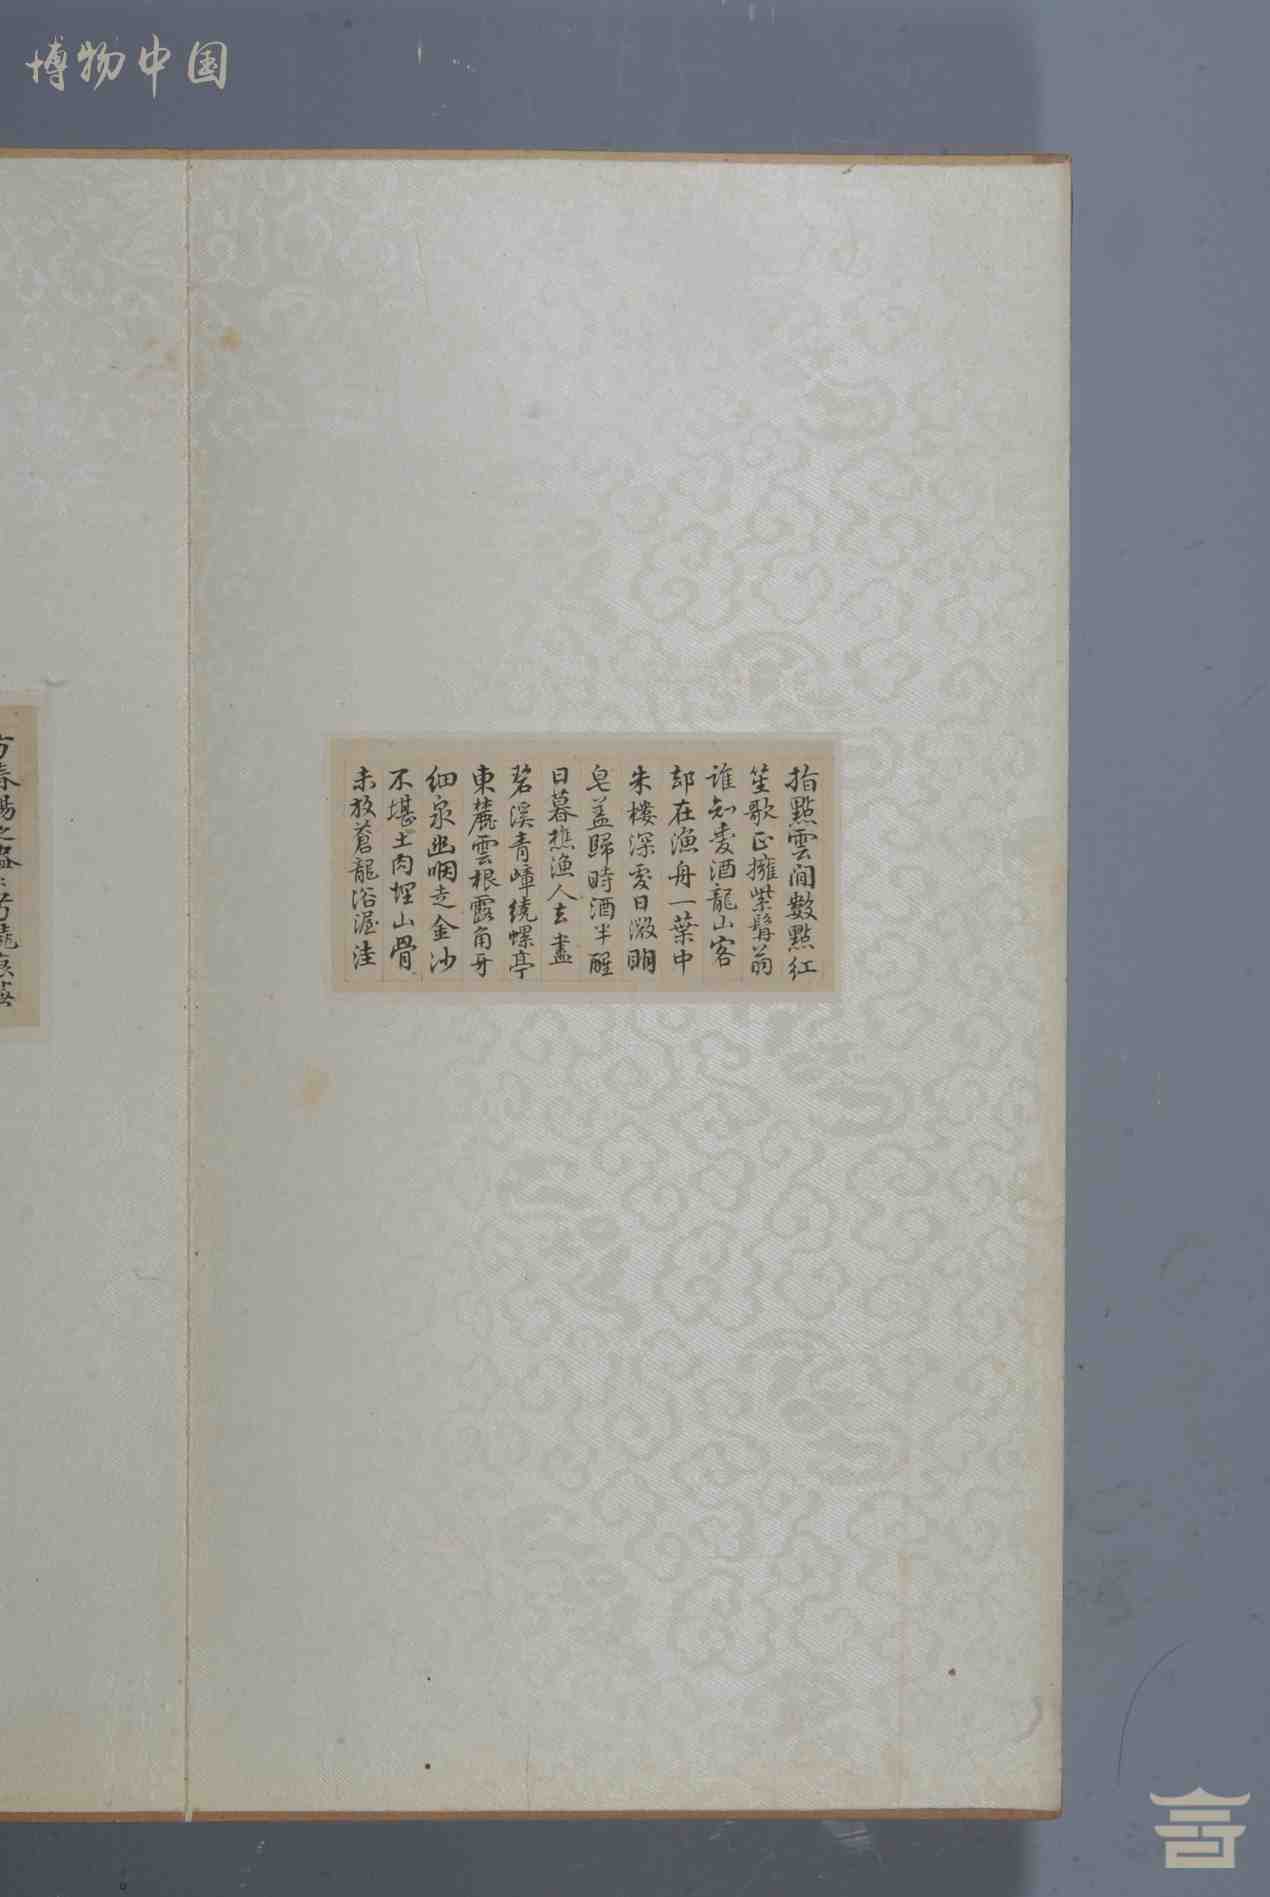 博物中国
指點雲間數點紅
笙歌正擁紫髯翁
誰知愛酒龍山客
却在漁舟一葉中
朱樓深處日微明
皂蓋歸時酒半醒
日暮樵漁人去盡
碧溪青嶂繞螺亭
東麓雲根露角牙
細泉幽咽走金沙
不堪土肉埋山骨
未放蒼龍浴渥洼
方春陽之盛